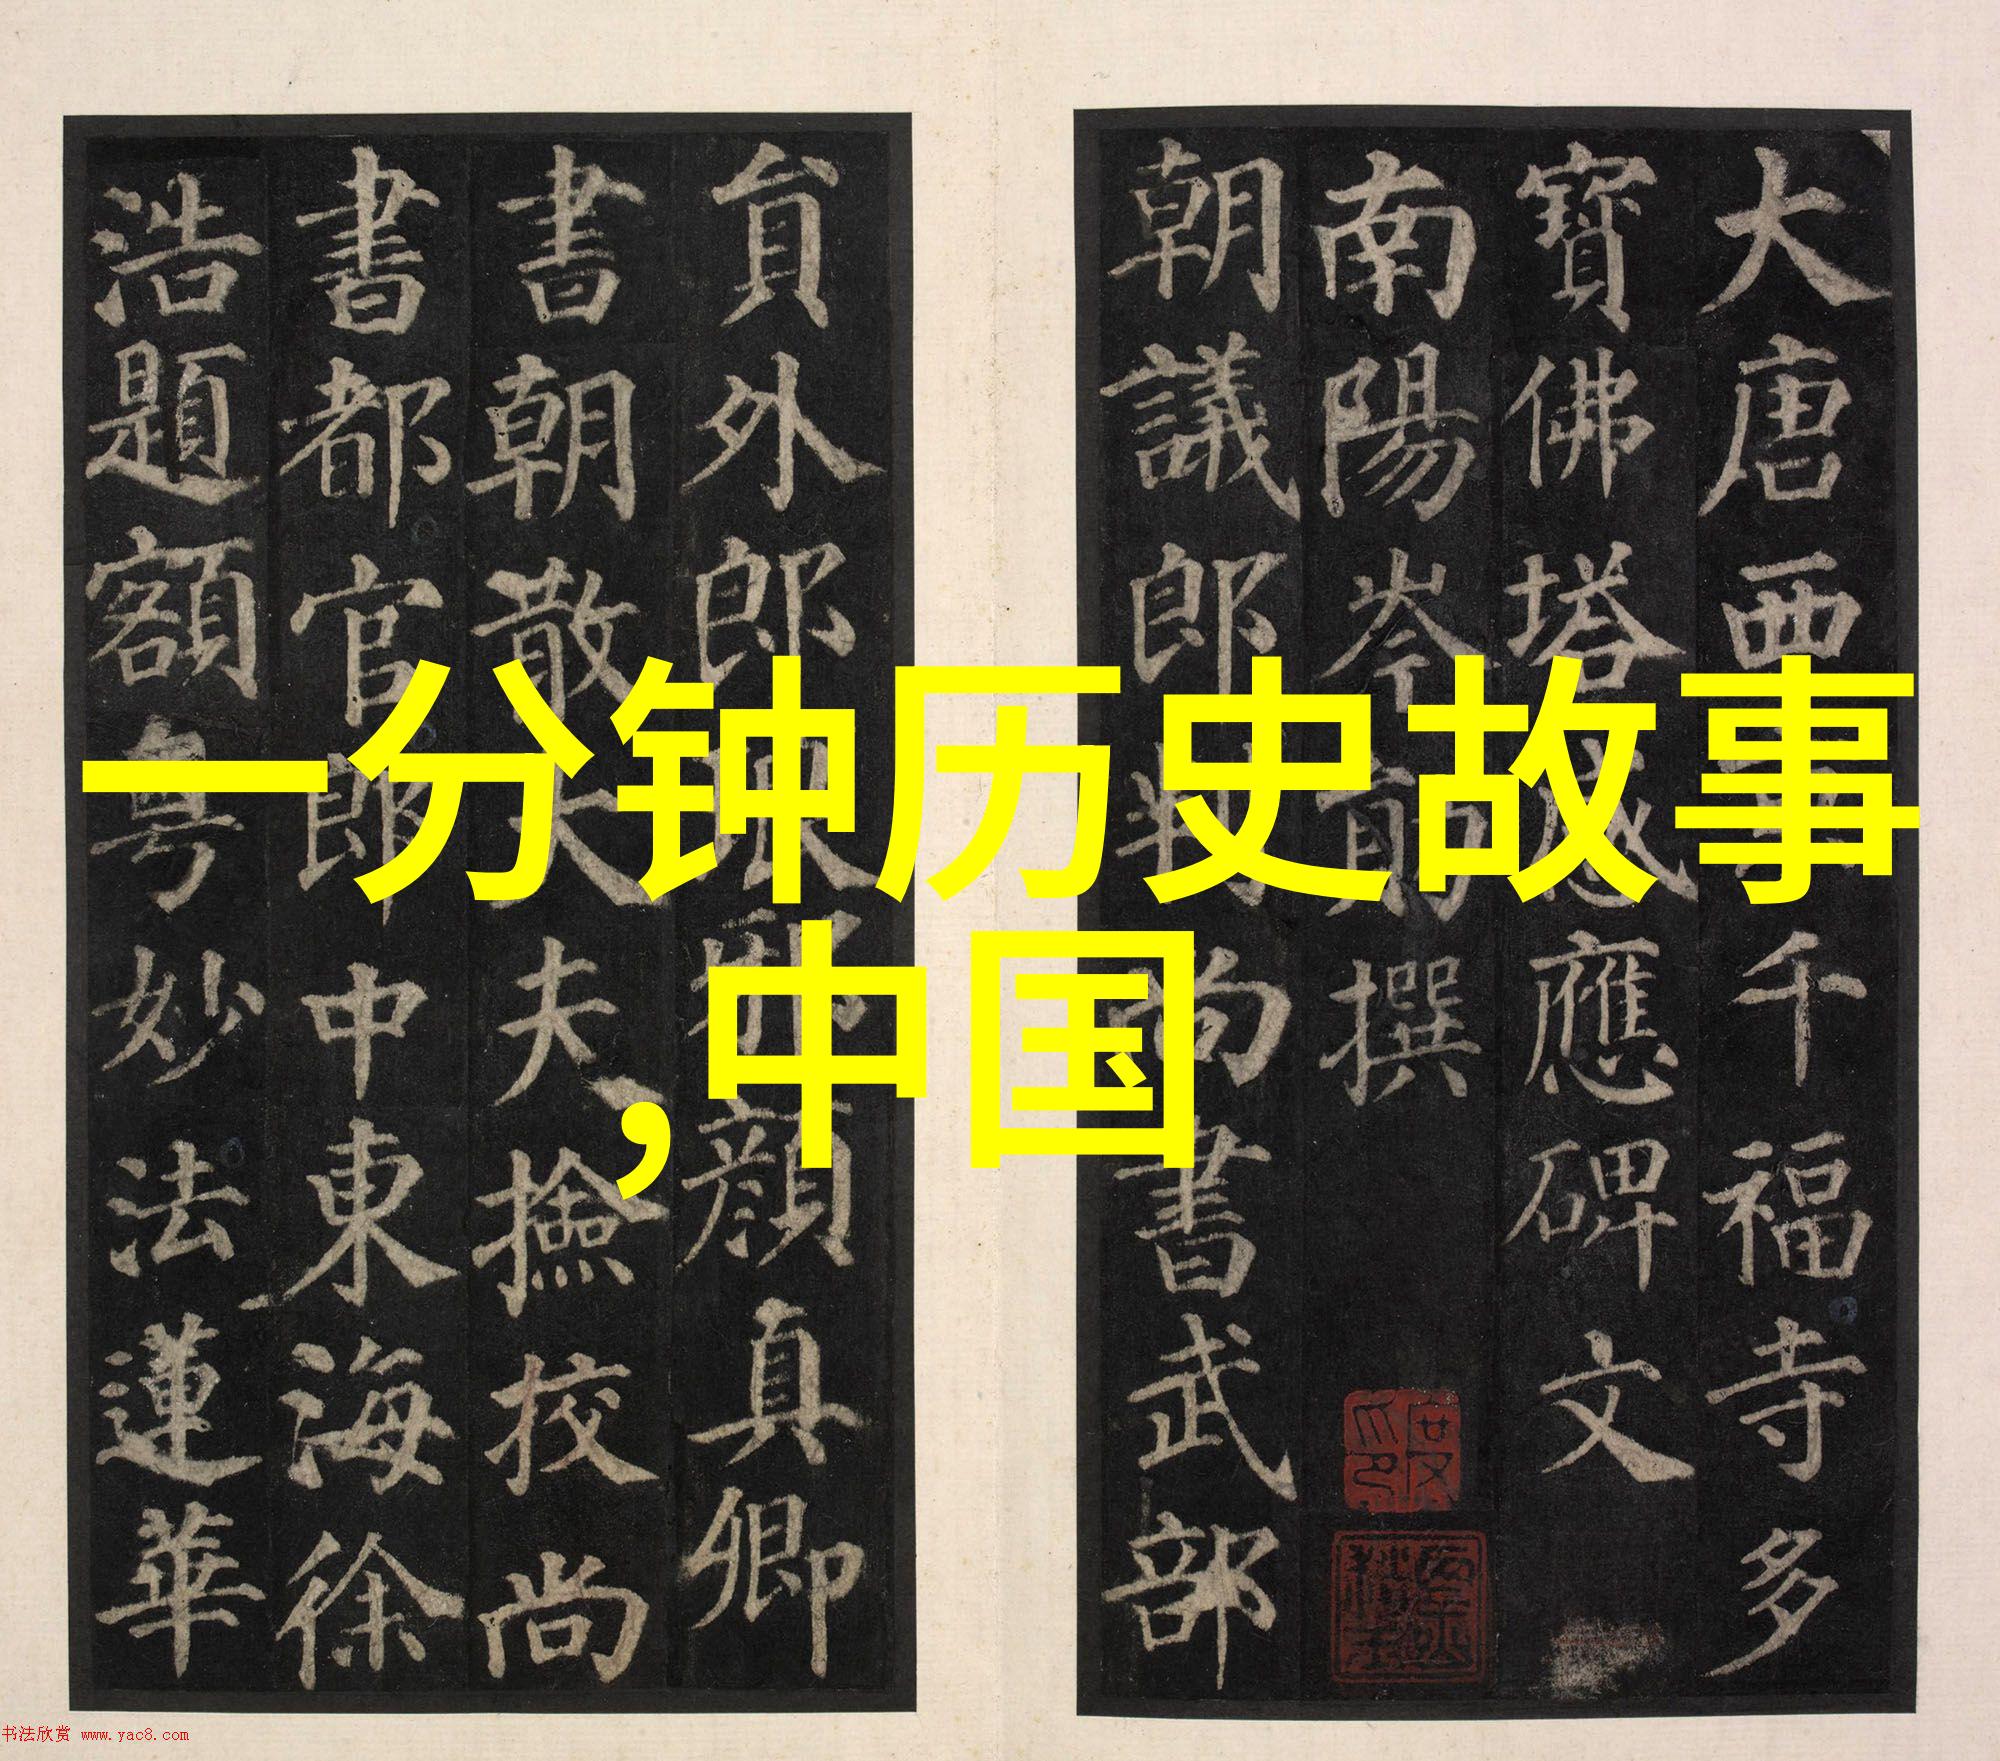 一分钟历史故事
,中国
大唐西千福寺多
寶佛塔感應碑文
南陽岑勛撰
朝議郎判尚書武部
貟外郎琅邪顏真卿
書朝散大夫撿校尚
書都官郎中東海徐
浩題額粤妙法蓮華
书法欣赏 www.yac8.com